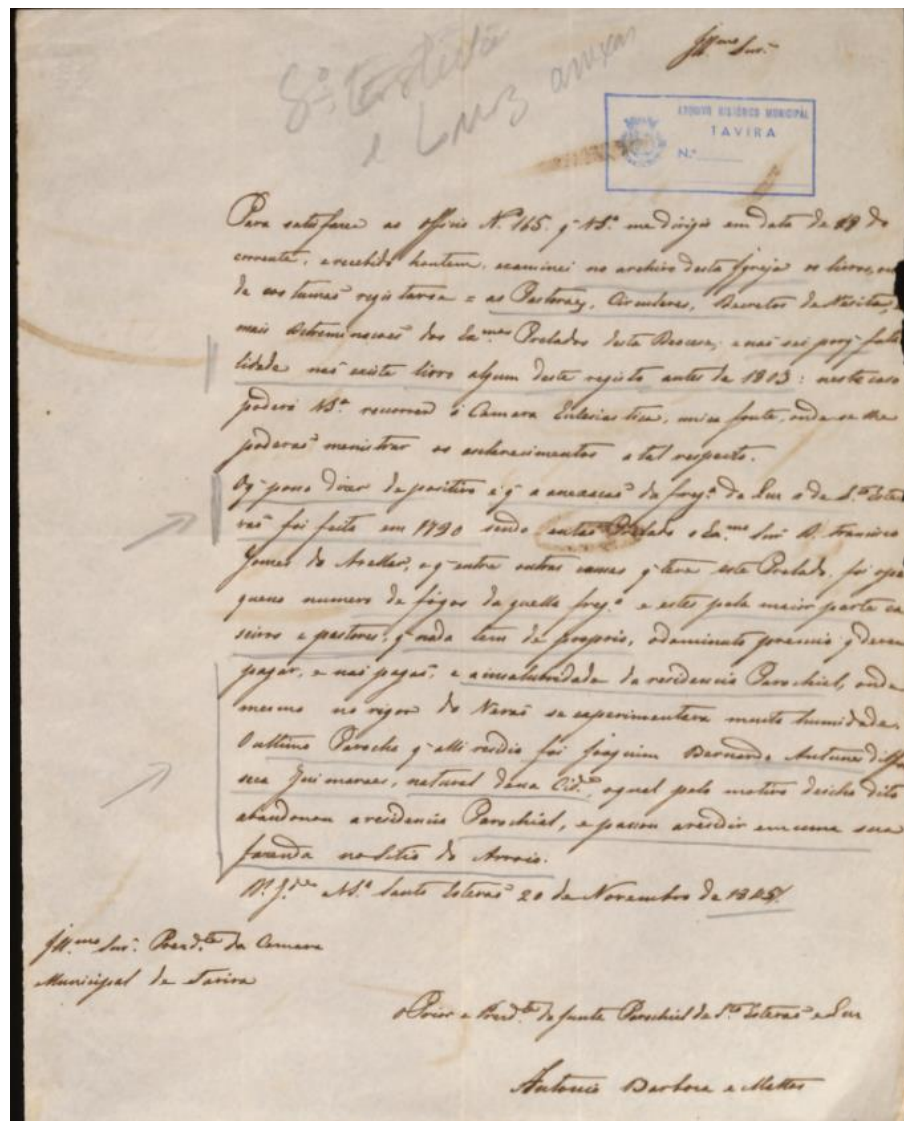 Illmo Snr.
Sto Estevão
e Luz anexas
ARQUIVO HISTÓRICO MUNICIPAL
TAVIRA
N.º
Para satisfazer ao officio N.º 165. q̃ VS.ª me dirigio em data de 18 do
corrente, e recebido hontem, examinei no archivo desta Igreja os livros, on
de costumas registarse = as Pastoraes, Circulares, Decretos de Vesitas,
mais detreminacoes dos Exmos Prelados desta Diocese; e naõ sei porq̃ fata
lidade naõ existe livro algum deste registo antes de 1813: neste caso
poderá VS.ª recorrer á Camara Eclesiastica, unica fonte, onde se lhe
poderaõ menistrar os esclarecimentos a tal respeito.
O q̃ posso dizer de positivo é q̃ a anexacaõ da freg.ª da Luz a de S.to Este
vaõ foi feita em 1790 sendo entaõ Prelado o Ex.mo Snr D. Francisco
Gomes do Avellar, e q̃ entre outras causas q̃ teve este Prelado, foi o pe
queno numero de fógos da quella freg.ª e estes pela maior parte ca
seiros e pastores, q̃ nada tem de proprio, o diminuto premio q̃ devem
pagar, e naõ pagaõ, e a insalubridade da residencia Parochial, onde
mesmo no rigor do Veraõ se experimentava muita humidade.
O ultimo Parocho q̃ alli residio foi Joaquim Bernardo Antunes
Guimaraes, natural dessa Cid.e, o qual pelo motivo dito
abandonou a residencia Parochial, e passou a residir em uma sua
fazenda no Sitio do Arroio.
D.s G.de a VS.ª Santo Estevaõ 20 de Novembro de 1845
Illmo Snr. Prezd.te da Camara
Municipal de Tavira
o Prior e Prezd.te da Junta Parochial de S.to Estevaõ e Luz
Antonio Barboza e Mattos